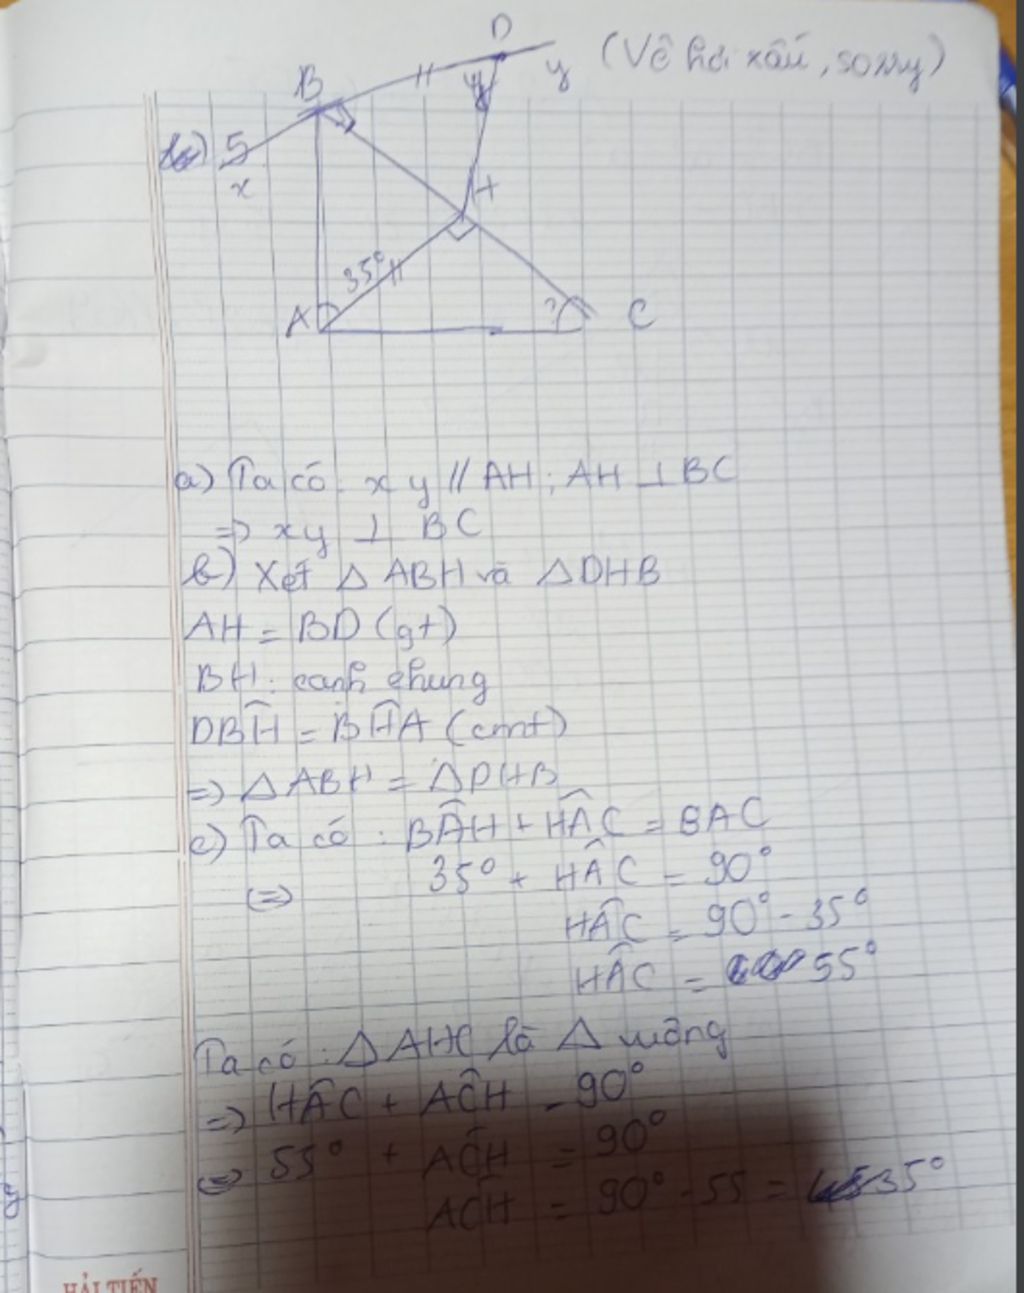 D
B
y (Vẽ hơi xấu, sorry)
5
x
H
35°
A
?
C
a) Ta có: xy // AH; AH ⊥ BC
=> xy ⊥ BC
b) Xét △ ABH và △DHB
AH = BD (gt)
BH: cạnh chung
DBĤ = BĤA (cmt)
=> △ ABH = △DHB
c) Ta có: BÂH + HÂC = BAC
<=> 35° + HÂC = 90°
HÂC = 90° - 35°
HÂC = 55°
Ta có: △ AHC là △ vuông
=> HÂC + AĈH = 90°
<=> 55° + AĈH = 90°
AĈH = 90° - 55 = 35°
HẢI TIẾN